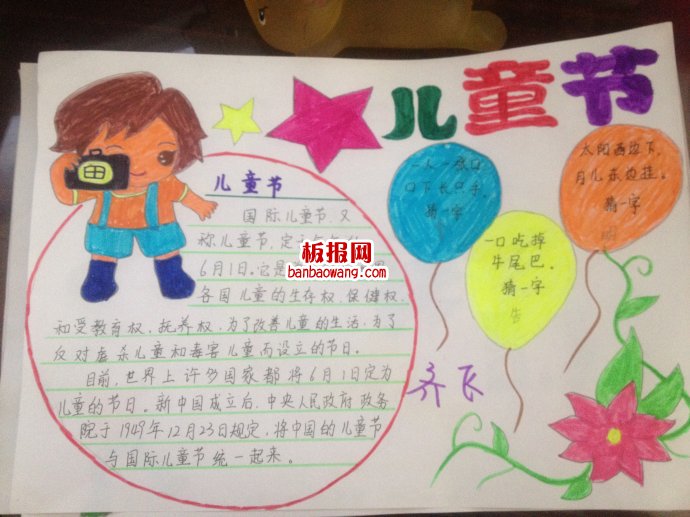 儿童节
儿童节
国际儿童节,又
称儿童节,定
6月1日。它是
各国儿童的生存权、保健权、
和受教育权、抚养权,为了改善儿童的生活,为了
反对虐杀儿童和毒害儿童而设立的节日。
目前,世界上许多国家都将6月1日定为
儿童的节日。新中国成立后,中央人民政府政务
院于1949年12月23日规定,将中国的儿童节
与国际儿童节统一起来。
一人一张口
口下长只手
猜一字
一口吃掉
牛尾巴。
猜一字
告
太阳西边下,
月儿东边挂。
猜一字
明
齐飞
板报网
banbaowang.com